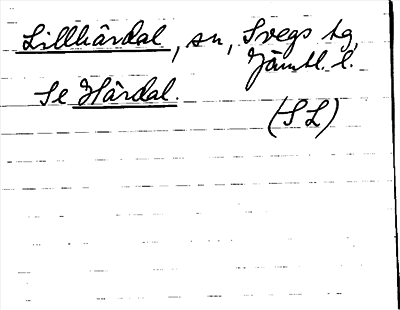 Lillhärdal, sn, Svegs tg,
Jämtl. l.
Se Härdal.
(S L)